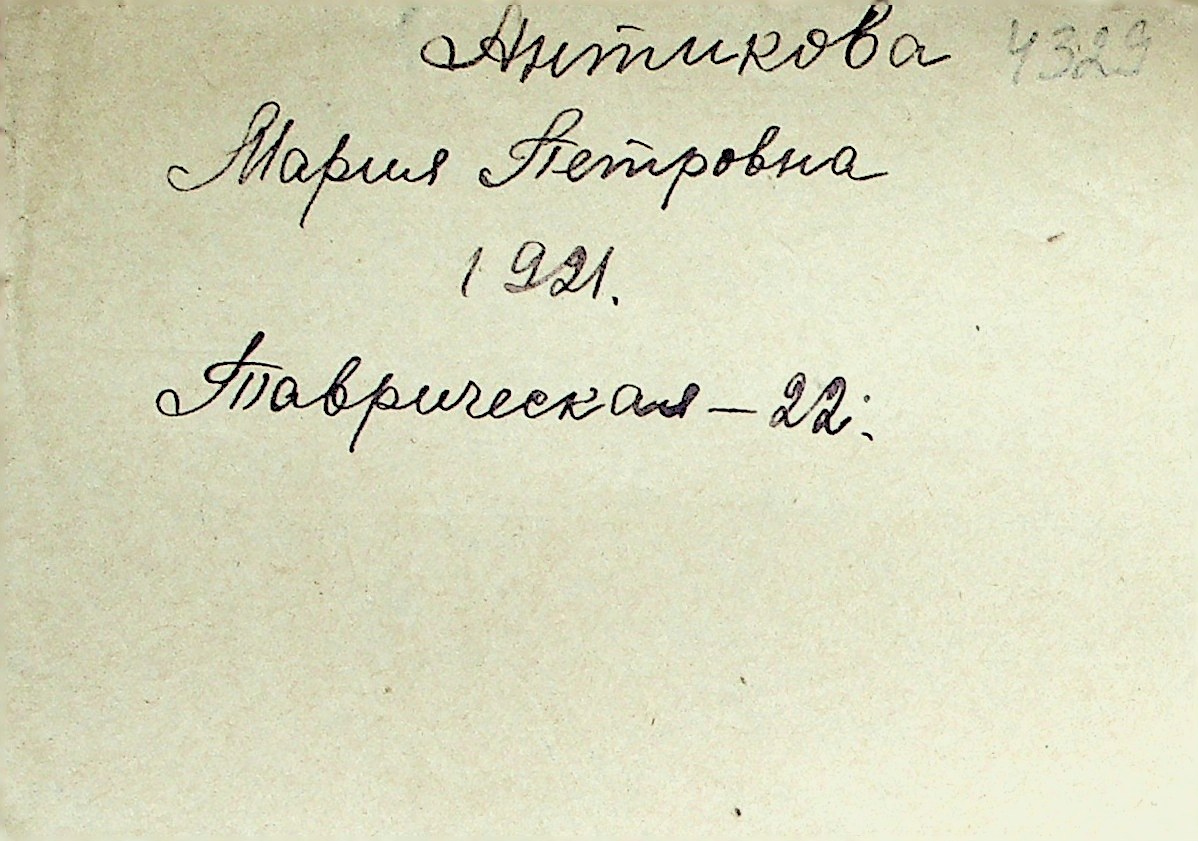 Антикова 4329
Мария Петровна
1921.
Таврическая - 22.